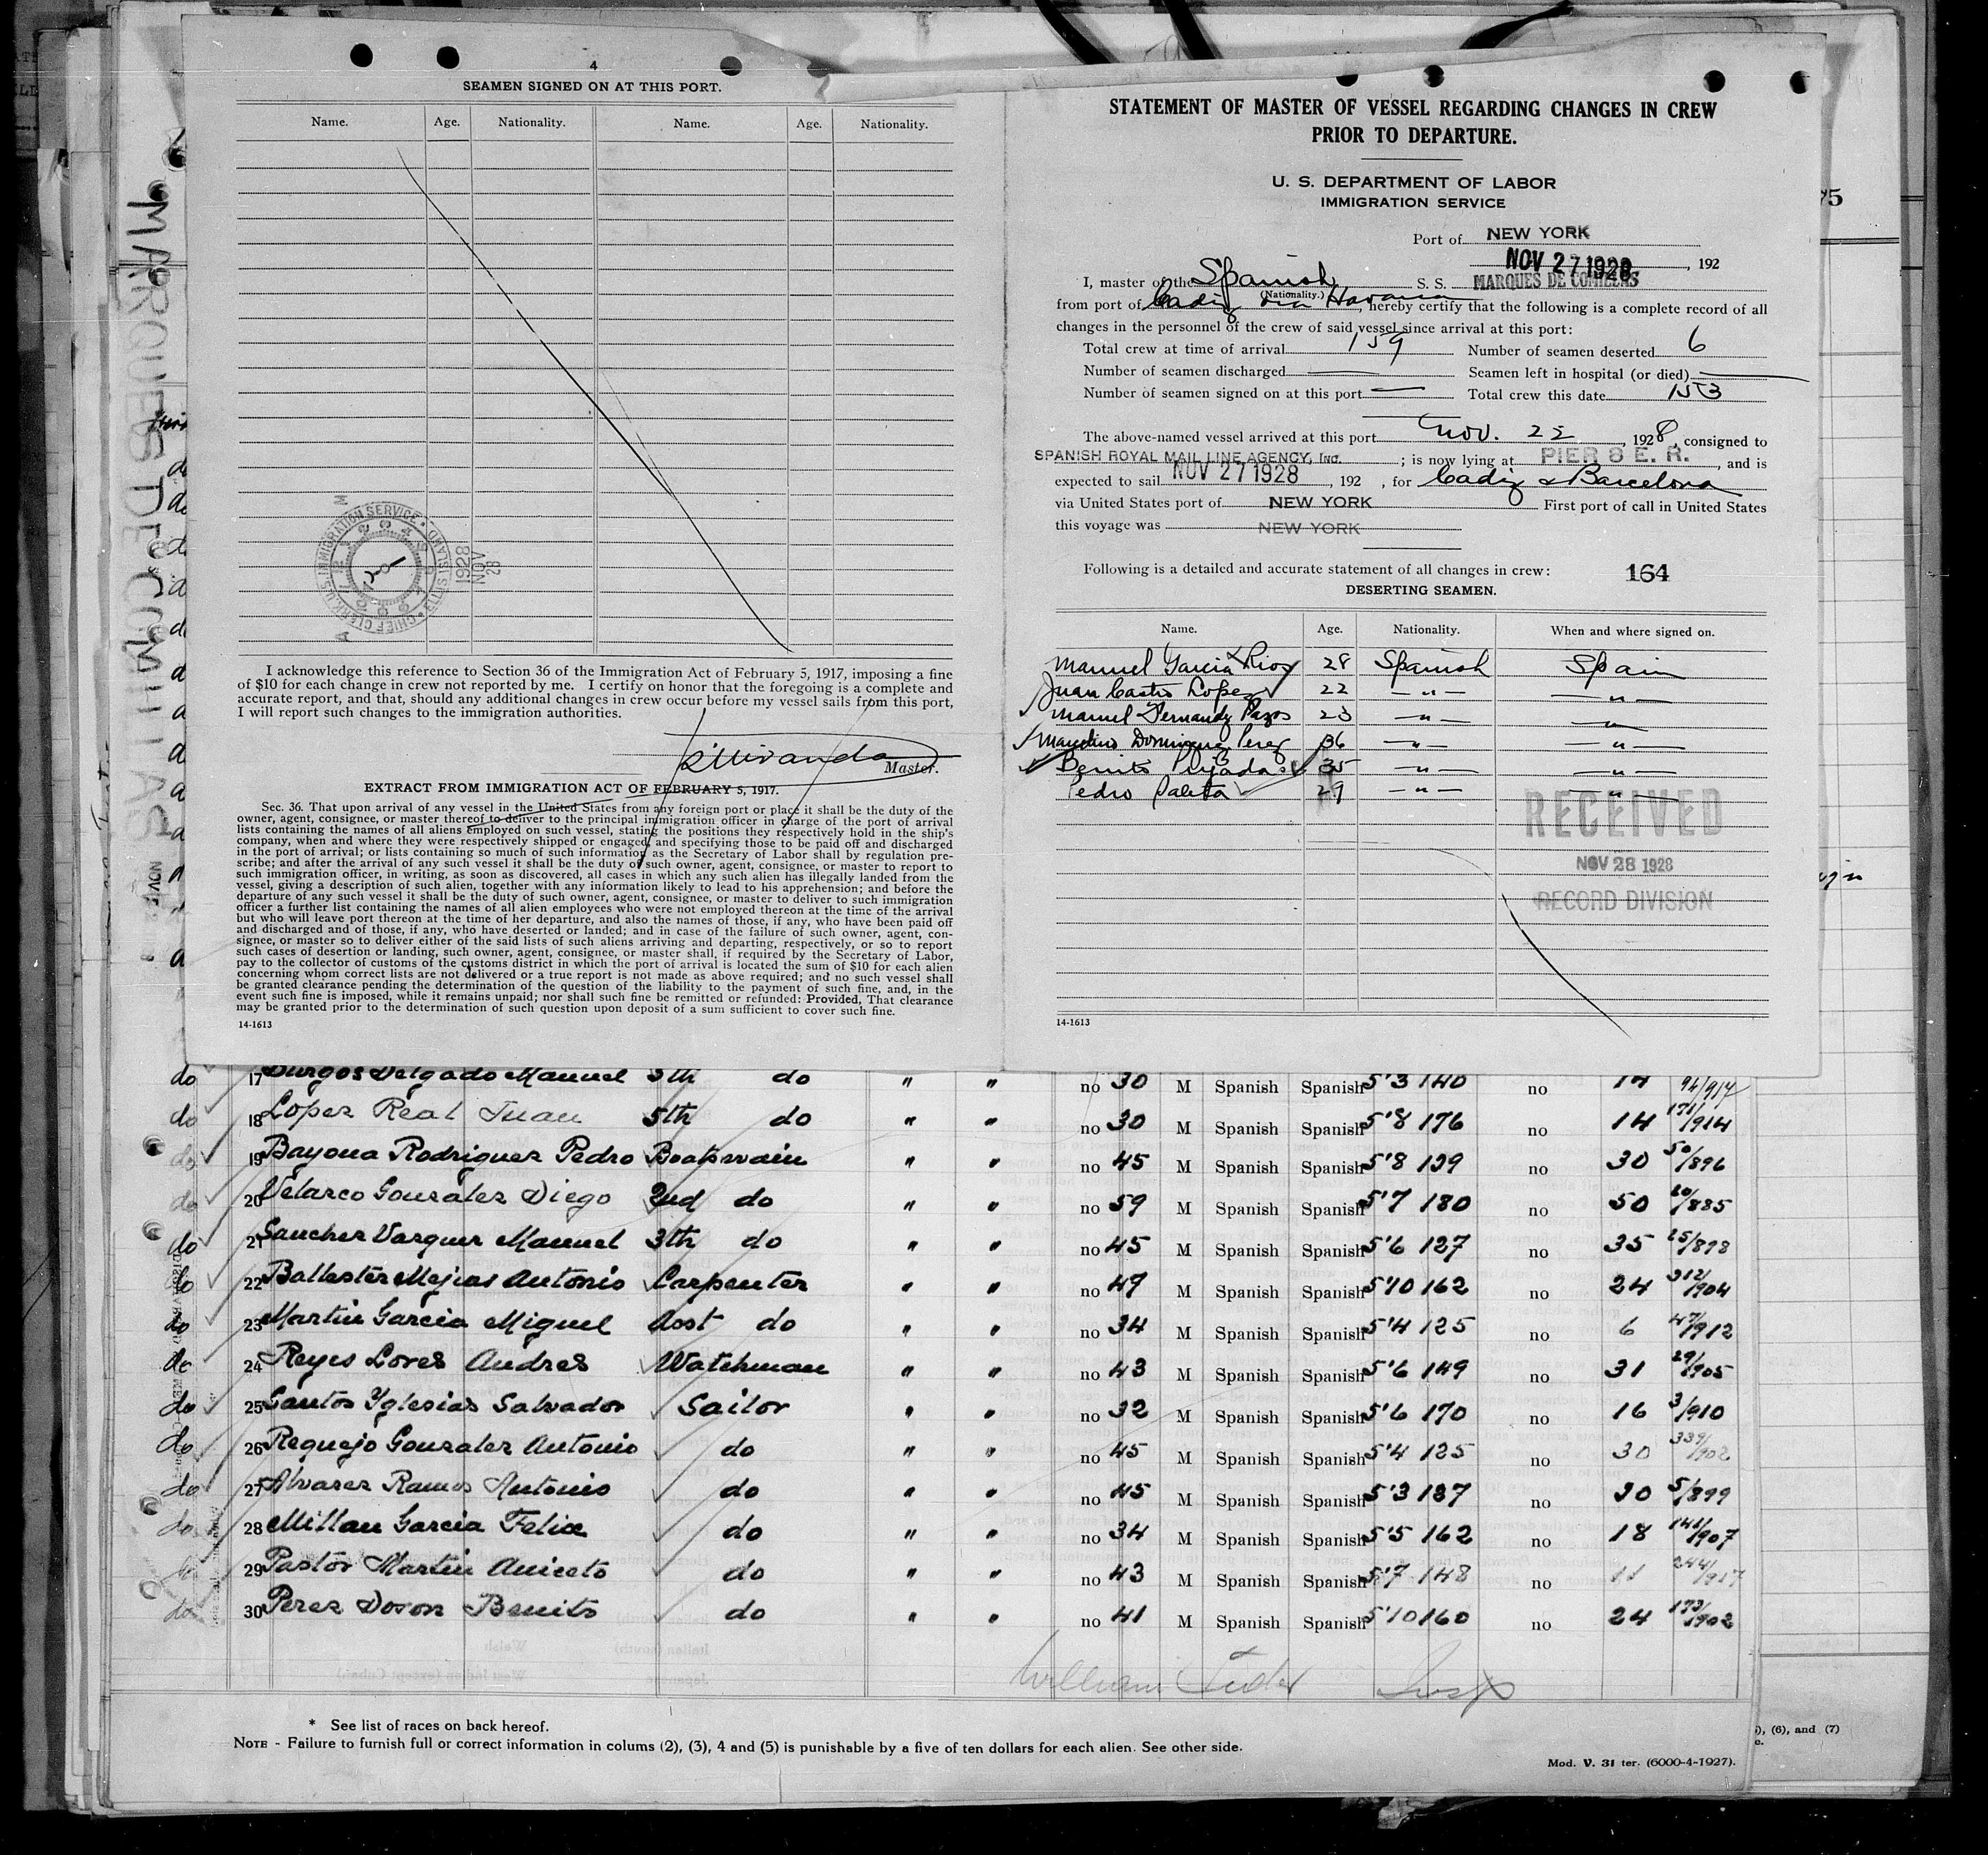 4
SEAMEN SIGNED ON AT THIS PORT.
Name. Age. Nationality. Name. Age. Nationality.
U.S. IMMIGRATION SERVICE • ELLIS ISLAND • CHIEF CLERK
1928 NOV 28
I acknowledge this reference to Section 36 of the Immigration Act of February 5, 1917, imposing a fine
of $10 for each change in crew not reported by me. I certify on honor that the foregoing is a complete and
accurate report, and that, should any additional changes in crew occur before my vessel sails from this port,
I will report such changes to the immigration authorities.
Master.
EXTRACT FROM IMMIGRATION ACT OF FEBRUARY 5, 1917.
Sec. 36. That upon arrival of any vessel in the United States from any foreign port or place it shall be the duty of the
owner, agent, consignee, or master thereof to deliver to the principal immigration officer in charge of the port of arrival
lists containing the names of all aliens employed on such vessel, stating the positions they respectively hold in the ship's
company, when and where they were respectively shipped or engaged, and specifying those to be paid off and discharged
in the port of arrival; or lists containing so much of such information as the Secretary of Labor shall by regulation pre-
scribe; and after the arrival of any such vessel it shall be the duty of such owner, agent, consignee, or master to report to
such immigration officer, in writing, as soon as discovered, all cases in which any such alien has illegally landed from the
vessel, giving a description of such alien, together with any information likely to lead to his apprehension; and before the
departure of any such vessel it shall be the duty of such owner, agent, consignee, or master to deliver to such immigration
officer a further list containing the names of all alien employees who were not employed thereon at the time of the arrival
but who will leave port thereon at the time of her departure, and also the names of those, if any, who have been paid off
and discharged and of those, if any, who have deserted or landed; and in case of the failure of such owner, agent, con-
signee, or master so to deliver either of the said lists of such aliens arriving and departing, respectively, or so to report
such cases of desertion or landing, such owner, agent, consignee, or master shall, if required by the Secretary of Labor,
pay to the collector of customs of the customs district in which the port of arrival is located the sum of $10 for each alien
concerning whom correct lists are not delivered or a true report is not made as above required; and no such vessel shall
be granted clearance pending the determination of the question of the liability to the payment of such fine, and, in the
event such fine is imposed, while it remains unpaid; nor shall such fine be remitted or refunded: Provided, That clearance
may be granted prior to the determination of such question upon deposit of a sum sufficient to cover such fine.
14-1613
STATEMENT OF MASTER OF VESSEL REGARDING CHANGES IN CREW
PRIOR TO DEPARTURE.
U. S. DEPARTMENT OF LABOR
IMMIGRATION SERVICE
Port of NEW YORK
NOV 27 1928, 192
I, master of the Spanish S. S. MARQUES DE COMILLAS
(Nationality.)
from port of Cadiz via Havana, hereby certify that the following is a complete record of all
changes in the personnel of the crew of said vessel since arrival at this port:
Total crew at time of arrival 159 Number of seamen deserted 6
Number of seamen discharged — Seamen left in hospital (or died) —
Number of seamen signed on at this port — Total crew this date 153
The above-named vessel arrived at this port Nov. 22, 1928, consigned to
SPANISH ROYAL MAIL LINE AGENCY, INC. ; is now lying at PIER 8 E. R. , and is
expected to sail NOV 27 1928, 192 , for Cadiz & Barcelona
via United States port of NEW YORK First port of call in United States
this voyage was NEW YORK
Following is a detailed and accurate statement of all changes in crew: 164
DESERTING SEAMEN.
Name. Age. Nationality. When and where signed on.
Manuel Garcia Rios 28 Spanish Spain
Juan Castro Lopez 22 — " — — " —
Manuel Fernandez Pazos 23 — " — — " —
Marcelino Dominguez Perez 36 — " — — " —
Benito 35 — " — — " —
Pedro 29 — " — — " —
RECEIVED
NOV 28 1928
RECORD DIVISION
14-1613
MARQUES DE COMILLAS
do 17 Burgos Delgado Manuel 5th do " " no 30 M Spanish Spanish 5'3 140 no 14 94/917
do 18 Lopez Real Juan 5th do " " no 30 M Spanish Spanish 5'8 176 no 14 171/914
do 19 Bayona Rodriguez Pedro Boatswain " " no 45 M Spanish Spanish 5'8 139 no 30 50/896
do 20 Velasco Gonzalez Diego 2nd do " " no 59 M Spanish Spanish 5'7 180 no 50 20/885
do 21 Sanchez Vazquez Manuel 3th do " " no 45 M Spanish Spanish 5'6 127 no 35 25/898
do 22 Ballester Mejias Antonio Carpenter " " no 49 M Spanish Spanish 5'10 162 no 24 312/904
do 23 Martin Garcia Miguel Asst do " " no 34 M Spanish Spanish 5'4 125 no 6 47/912
do 24 Reyes Lores Andres Watchman " " no 43 M Spanish Spanish 5'6 149 no 31 29/905
do 25 Santos Yglesias Salvador Sailor " " no 32 M Spanish Spanish 5'6 170 no 16 3/910
do 26 Requejo Gonzalez Antonio do " " no 45 M Spanish Spanish 5'4 125 no 30 339/902
do 27 Alvarez Ramos Antonio do " " no 45 M Spanish Spanish 5'3 187 no 30 5/899
do 28 Millan Garcia Felix do " " no 34 M Spanish Spanish 5'5 162 no 18 141/907
29 Pastor Martin Aniceto do " " no 43 M Spanish Spanish 5'7 148 no 11 244/917
do 30 Perez Doson Benito do " " no 41 M Spanish Spanish 5'10 160 no 24 173/902
William
* See list of races on back hereof.
NOTE - Failure to furnish full or correct information in colums (2), (3), 4 and (5) is punishable by a five of ten dollars for each alien. See other side.
Mod. V. 31 ter. (6000-4-1927).
), (6), and (7)